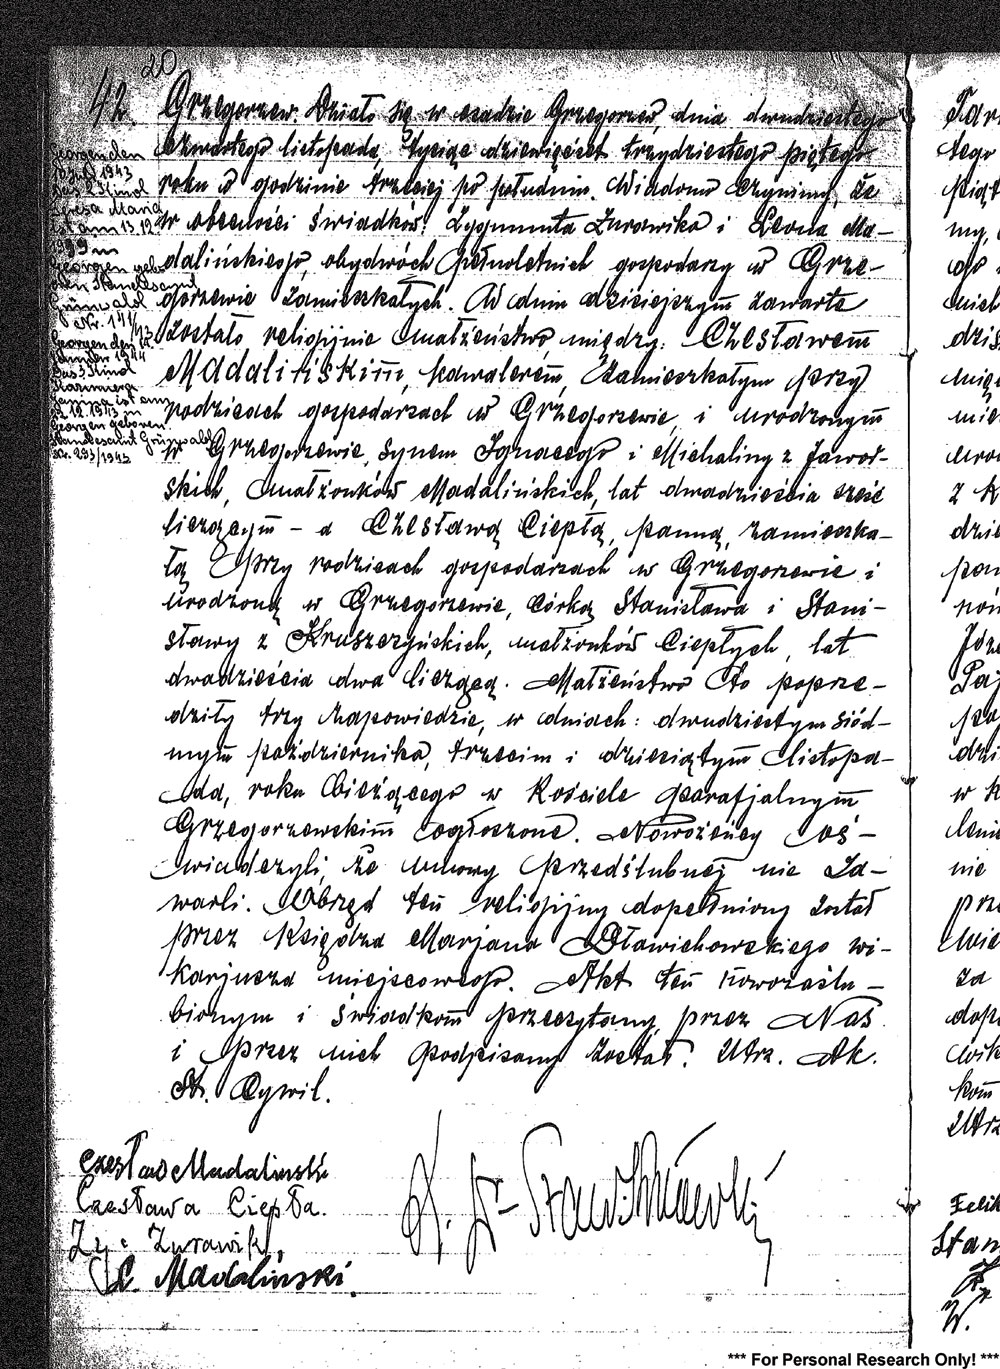 20
42. Grzegorzew. Działo się w osadzie Grzegorzew, dnia dwudziestego
czwartego listopada, tysiąc dziewięćset trzydziestego piątego
roku o godzinie trzeciej po południu. Wiadomo czynimy, że
w obecności świadków: Zygmunta Żurawika i Leona Ma-
dalińskiego, obydwóch pełnoletnich gospodarzy w Grze-
gorzewie zamieszkałych. W dniu dzisiejszym zawarte
zostało religijnie małżeństwo, między: Czesławem
Madalińskim, kawalerem, zamieszkałym przy
rodzicach gospodarzach w Grzegorzewie, i urodzonym
w Grzegorzewie, synem Ignacego i Michaliny z Jawor-
skich, małżonków Madalińskich, lat dwadzieścia sześć
liczącym – a Czesławą Ciepłą, panną, zamieszka-
łą przy rodzicach gospodarzach w Grzegorzewie i
urodzoną w Grzegorzewie, córką Stanisława i Stani-
sławy z Kruszczyńskich, małżonków Ciepłych, lat
dwadzieścia dwa liczącą. Małżeństwo to poprze-
dziły trzy zapowiedzie, w dniach: dwudziestym siód-
mym października, trzecim i dziesiątym listopa-
da, roku bieżącego w Kościele parafjalnym
Grzegorzewskim ogłoszone. Nowożeńcy oś-
wiadczyli, że umowy przedślubnej nie za-
warli. Obrzęd ten religijny dopełniony został
przez Księdza Marjana wi-
karjusza miejscowego. Akt ten nowozaślu-
bionym i świadkom przeczytany, przez Nas
i przez nich podpisany został. Utrz. Ak.
St. Cywil.
Georgen den
1943
Das 2. Kind
Teresa Maria
ist am 13.12
in
Georgen gebo-
ren Standesamt
Grünwald
Nr. 141/43
Georgen den
1944
Das 3 Kind
Kazimiera
Janina ist am
12.1943 in
Georgen geboren
Standesamt Grünwald
Nr. 293/1943
Czesław Madaliński
Czesława Ciepła.
Zy: Żurawik,
L. Madalinski.